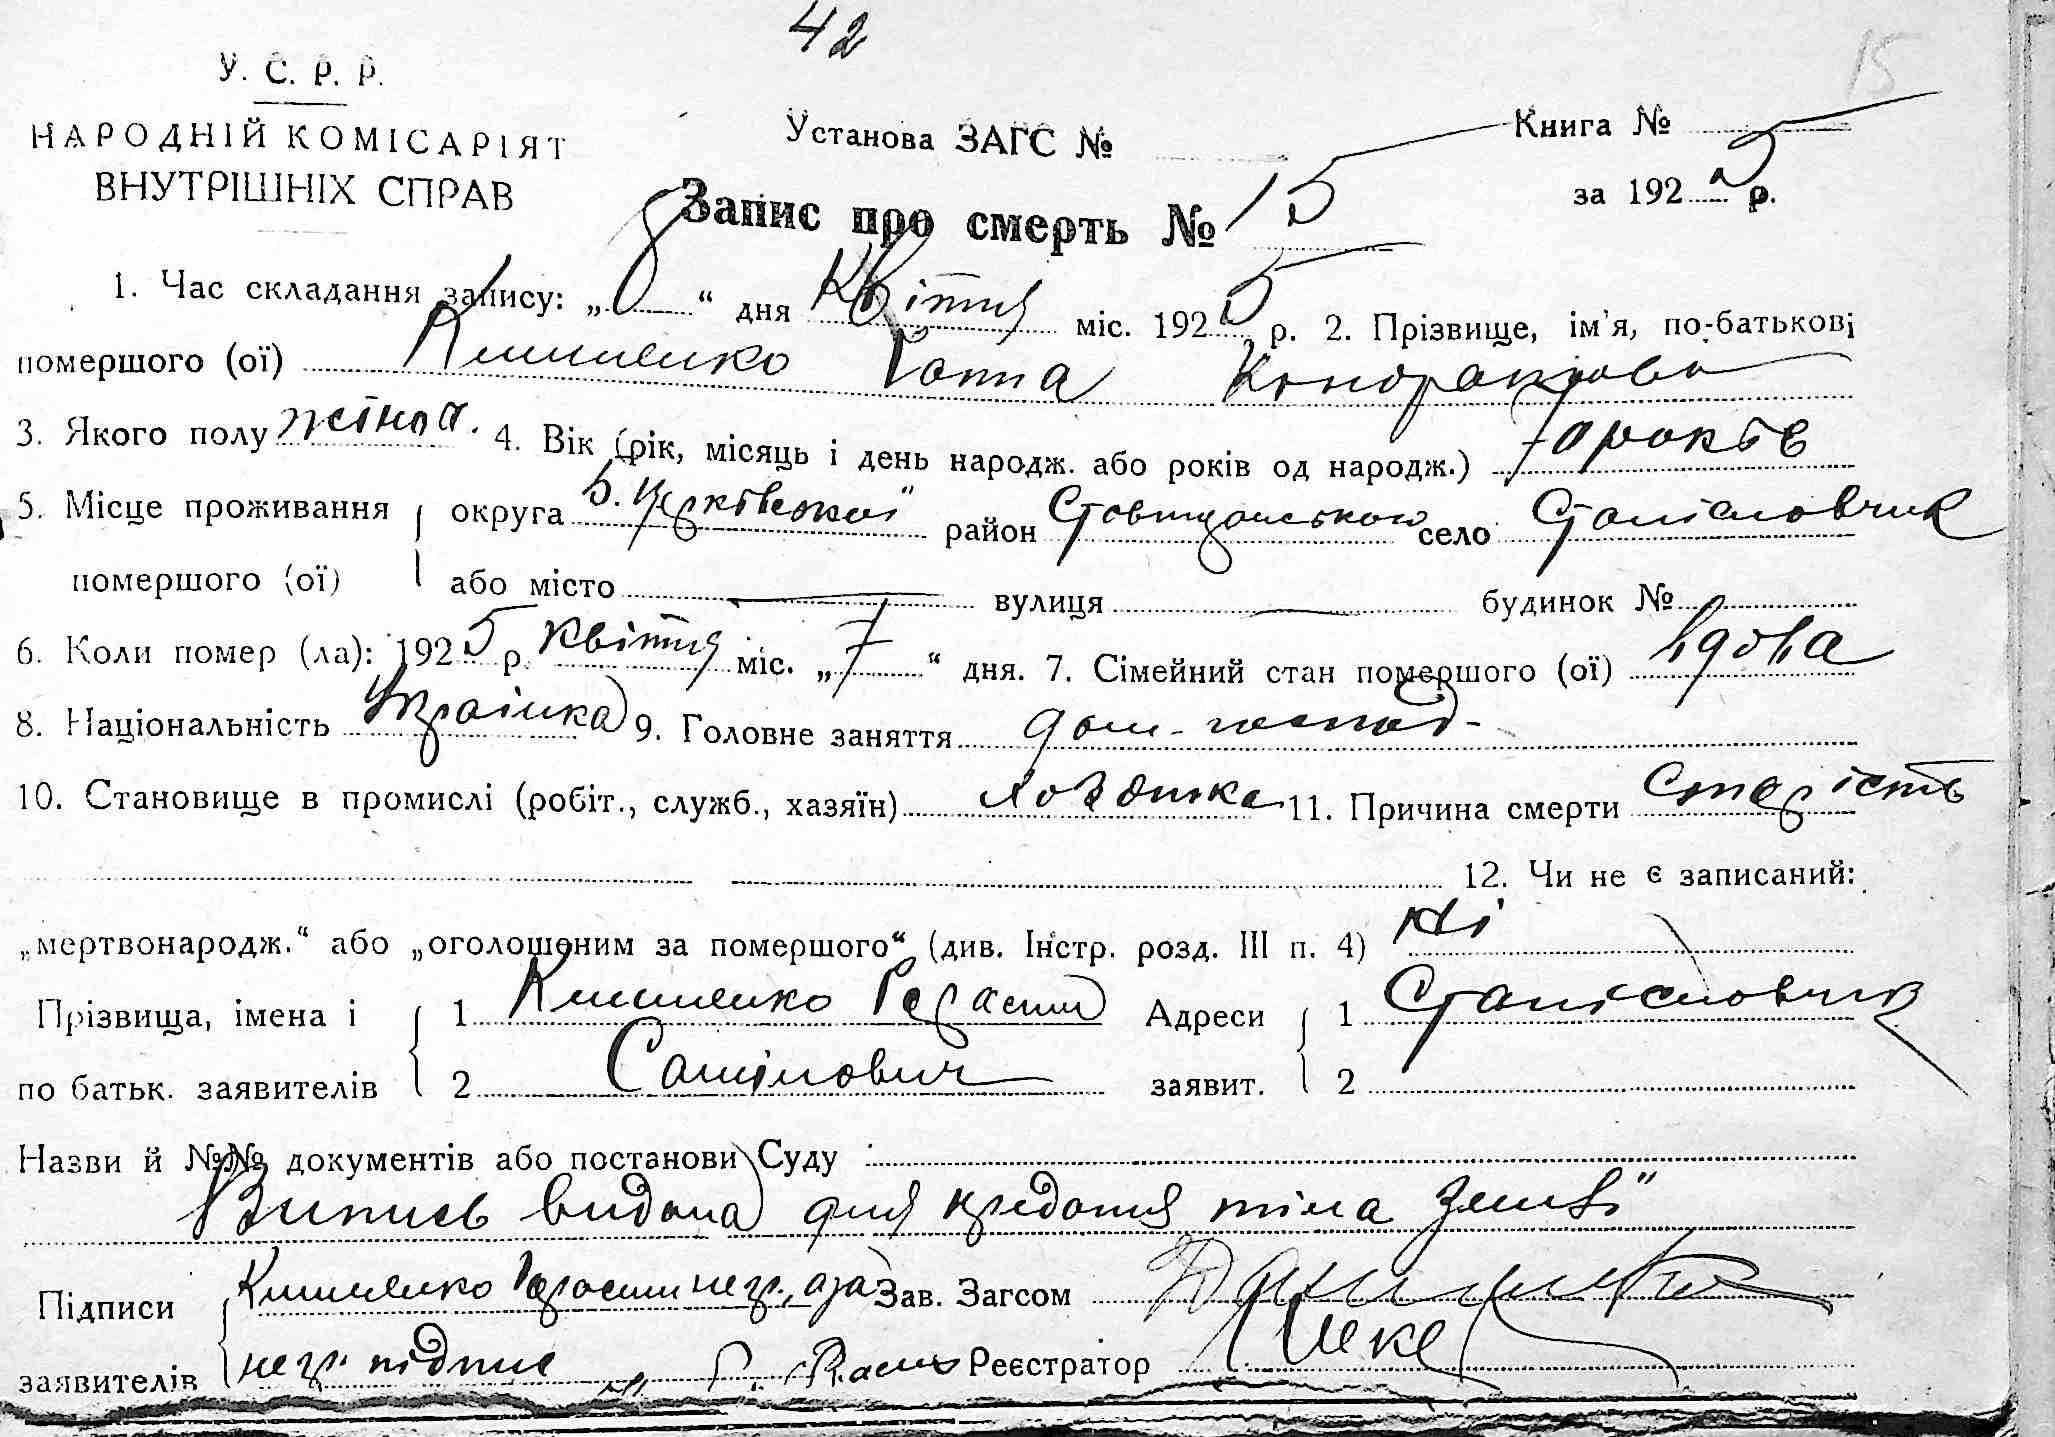 42
15
У. С. Р. Р.
НАРОДНІЙ КОМІСАРІЯТ
ВНУТРІШНІХ СПРАВ
Установа ЗАГС №
Книга №
за 1925 р.
Запис про смерть № 15
1. Час складання запису: „8“ дня Квітня міс. 1925 р. 2. Прізвище, ім'я, по-батькові
помершого (ої) Клименко Ганна Кондратова
3. Якого полу жіноч. 4. Вік (рік, місяць і день народж. або років од народж.) 70 років
5. Місце проживання округа Б. Церківської район Ставищанського село Станіславчик
помершого (ої) або місто — вулиця — будинок №
6. Коли помер (ла): 1925 р. Квітня міс. „7“ дня. 7. Сімейний стан помершого (ої) вдова
8. Національність Українка 9. Головне заняття дом-господ-
10. Становище в промислі (робіт., служб., хазяїн) хозяйка 11. Причина смерти старість
12. Чи не є записаний:
„мертвонародж.“ або „оголошеним за помершого“ (див. Інстр. розд. III п. 4) Ні
Прізвища, імена і 1 Клименко Герасим Адреси 1 Станіславчик
по батьк. заявителів 2 заявит. 2
Назви й №№ документів або постанови Суду
Випись видана для предання тіла землі
Підписи Клименко Герасим негр., а за Зав. Загсом
заявителів негр. підпис Реєстратор